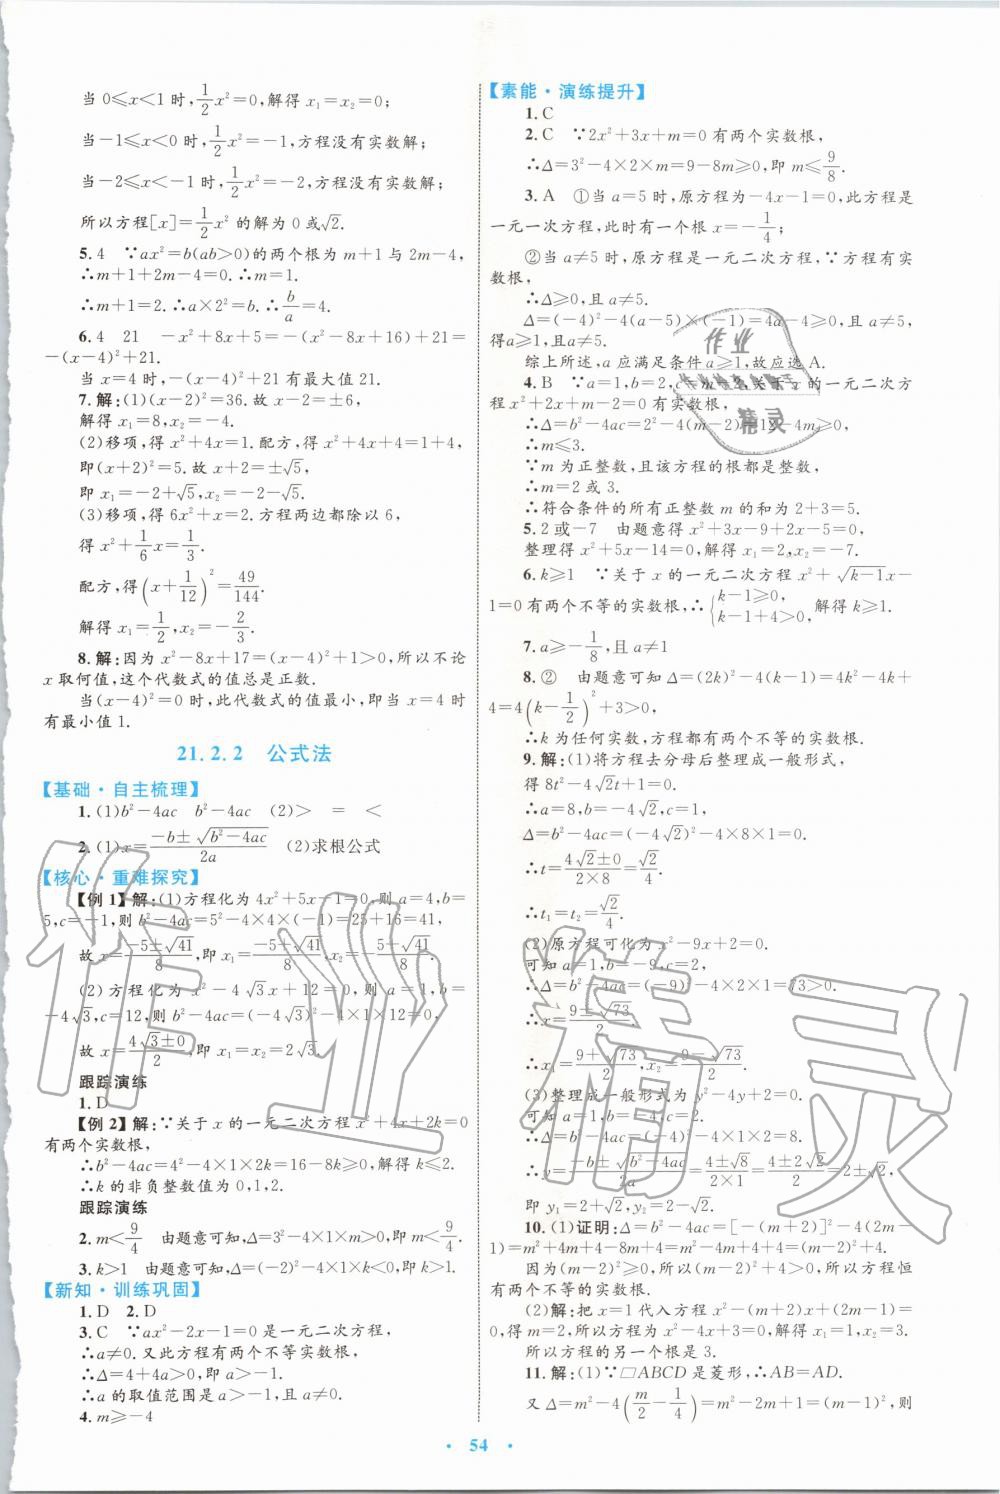 当 0≤x<1 时,1/2x²=0,解得 x₁=x₂=0;
当 −1≤x<0 时,1/2x²=−1,方程没有实数解;
当 −2≤x<−1 时,1/2x²=−2,方程没有实数解;
所以方程[x]=1/2x² 的解为 0 或√2.
5.4 ∵ax²=b(ab>0)的两个根为 m+1 与 2m−4,
∴m+1+2m−4=0.∴m=1.
∴m+1=2.∴a×2²=b.∴b/a=4.
6.4 21 −x²+8x+5=−(x²−8x+16)+21=
−(x−4)²+21.
当 x=4 时,−x²+8x+5 有最大值 21.
7.解:(1)(x−2)²=36.故 x−2=±6,
解得 x₁=8,x₂=−4.
(2)移项,得 x²+4x=1.配方,得 x²+4x+4=1+4,
即(x+2)²=5.故 x+2=±√5,
即 x₁=−2+√5,x₂=−2−√5.
(3)移项,得 6x²+x=2.方程两边都除以 6,
得 x²+1/6x=1/3.
配方,得(x+1/12)²=49/144.
解得 x₁=1/2,x₂=−2/3.
8.解:因为 x²−8x+17=(x−4)²+1>0,所以不论
x 取何值,这个代数式的值总是正数.
当(x−4)²=0 时,此代数式的值最小,即当 x=4 时
有最小值 1.
21.2.2 公式法
【基础·自主梳理】
1.(1)b²−4ac b²−4ac (2)> = <
2.(1)x=(−b±√(b²−4ac))/2a (2)求根公式
【核心·重难探究】
【例 1】解:(1)方程化为 4x²+5x−1=0,故 a=4,b=
5,c=−1,则 b²−4ac=5²−4×4×(−1)=25+16=41,
故 x=(−5±√41)/8,即 x₁=(−5+√41)/8,x₂=(−5−√41)/8.
(2)方程化为 x²−4√3x+12=0,故 a=1,b=
−4√3,c=12,则 b²−4ac=(−4√3)²−4×1×12=0,
故 x=(4√3±0)/2,即 x₁=x₂=2√3.
跟踪演练
1.D
【例 2】解:∵关于 x 的一元二次方程 x²+4x+2k=0
有两个实数根,
∴b²−4ac=4²−4×1×2k=16−8k≥0,解得 k≤2.
∴k 的非负整数值为 0,1,2.
跟踪演练
2.m<9/4 由题意可知,Δ=3²−4×1×m>0,即 m<9/4.
3.k>1 由题意可知,Δ=(−2)²−4×1×k<0,即 k>1.
【新知·训练巩固】
1.D 2.D
3.C ∵ax²−2x−1=0 是一元二次方程,
∴a≠0.又此方程有两个不等实数根,
∴Δ=4+4a>0,∴a>−1.
∴a 的取值范围是 a>−1,且 a≠0.
4.m≥−4
【素能·演练提升】
1.C
2.C ∵2x²+3x+m=0 有两个实数根,
∴Δ=3²−4×2×m=9−8m≥0,即 m≤9/8.
3.A ①当 a=5 时,原方程为−4x−1=0,此方程是
一元一次方程,此时有一个根 x=−1/4;
②当 a≠5 时,原方程是一元二次方程,∵方程有实
数根,
∴Δ≥0,且 a≠5.
Δ=(−4)²−4(a−5)×(−1)=4a−4≥0,
得a≥1,且 a≠5.
综上所述,a 应满足条件 a≥1,故应选 A.
4.B ∵a=1,b=2,c=m−2,关于 x 的一元二次方
程 x²+2x+m−2=0 有实数根,
∴Δ=b²−4ac=2²−4(m−2)=12−4m≥0,
∴m≤3.
∵m 为正整数,且该方程的根都是整数,
∴m=2 或 3.
∴符合条件的所有正整数 m 的和为 2+3=5.
5.2 或−7 由题意得 x²+3x−9+2x−5=0,
整理得 x²+5x−14=0,解得 x₁=2,x₂=−7.
6.k≥1 ∵关于 x 的一元二次方程 x²+√(k−1)x−
1=0 有两个不等的实数根,∴{k−1≥0, k−1+4>0, 解得 k≥1.
7.a≥−1/8,且 a≠1
8.② 由题意可知 Δ=(2k)²−4(k−1)=4k²−4k+
4=4(k−1/2)²+3>0,
∴k 为任何实数,方程都有两个不等的实数根.
9.解:(1)将方程去分母后整理成一般形式,
得 8t²−4√2t+1=0.
∴a=8,b=−4√2,c=1.
Δ=b²−4ac=(−4√2)²−4×8×1=0.
∴t=(4√2±0)/(2×8)=√2/4.
∴t₁=t₂=√2/4.
(2)原方程可化为 x²−9x+2=0.
可知 a=1,b=−9,c=2.
∴Δ=b²−4ac=(−9)²−4×2×1=73>0.
∴x=(9±√73)/2.
∴x₁=(9+√73)/2,x₂=(9−√73)/2.
(3)整理成一般形式为 y²−4y+2=0.
可知 a=1,b=−4,c=2.
∴Δ=b²−4ac=(−4)²−4×1×2=8.
∴y=(−b±√(b²−4ac))/2a=(4±√8)/(2×1)=(4±2√2)/2=2±√2,
即 y₁=2+√2,y₂=2−√2.
10.(1)证明:Δ=b²−4ac=[−(m+2)]²−4(2m−
1)=m²+4m+4−8m+4=m²−4m+4+4=(m−2)²+4.
因为(m−2)²≥0,所以(m−2)²+4>0,所以方程恒
有两个不等的实数根.
(2)解:把 x=1 代入方程 x²−(m+2)x+(2m−1)=
0,得 m=2,所以方程为 x²−4x+3=0,解得 x₁=1,x₂=3.
所以方程的另一个根是 3.
11.解:(1)∵▱ABCD 是菱形,∴AB=AD.
又 Δ=m²−4(m/2−1/4)=m²−2m+1=(m−1)²,则
· 54 ·
作业
精灵
作业精灵